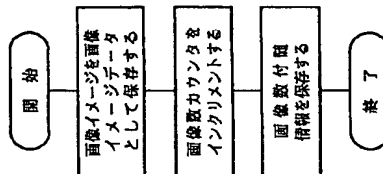 開始
画像イメージを画像
イメージデータ
として保存する
画像数カウンタを
インクリメントする
画像数付随
情報を保存する
終了